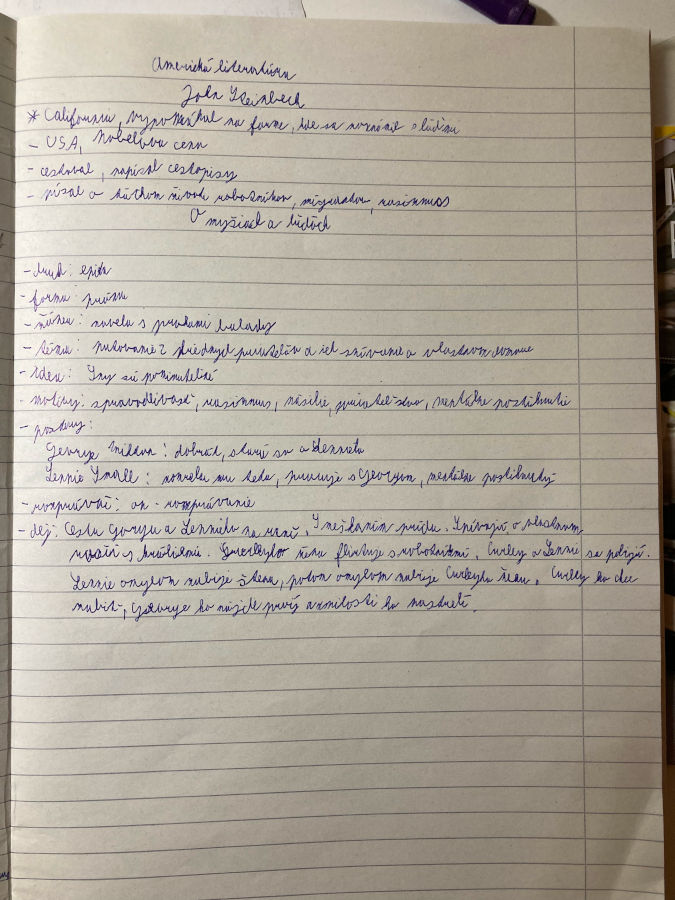 Americká literatúra
John Steinbeck
* California, vypomáhal na farme, kde sa zoznámil s ľuďmi
- USA, Nobelova cena
- cestoval, napísal cestopisy
- písal o ťažkom živote robotníkov, migrantov, rasizmus
O myšiach a ľuďoch
- druh: epika
- forma: próza
- žáner: novela s prvkami balady
- téma: putovanie 2 priateľov a ich snívanie o vlastnom domove
- idea: Sny sú pominuteľné
- motívy: spravodlivosť, rasizmus, násilie, priateľstvo, mentálne postihnutie
- postavy:
George Milton: dobrák, stará sa o Lennieho
Lennie Small: mu teda, pracuje s Georgom, mentálne postihnutý
- rozprávač: on - rozprávanie
- dej: Cesta Georga a Lennieho na ranč. S meškaním prídu. Snívajú o vlastnom
ranči s králikmi. Curleyho žena flirtuje s robotníkmi. Curley a Lennie sa pobijú.
Lennie omylom zabije šteňa, potom omylom zabije Curleyho ženu. Curley ho chce
zabiť, George ho nájde prvý a z milosti ho zastrelí.